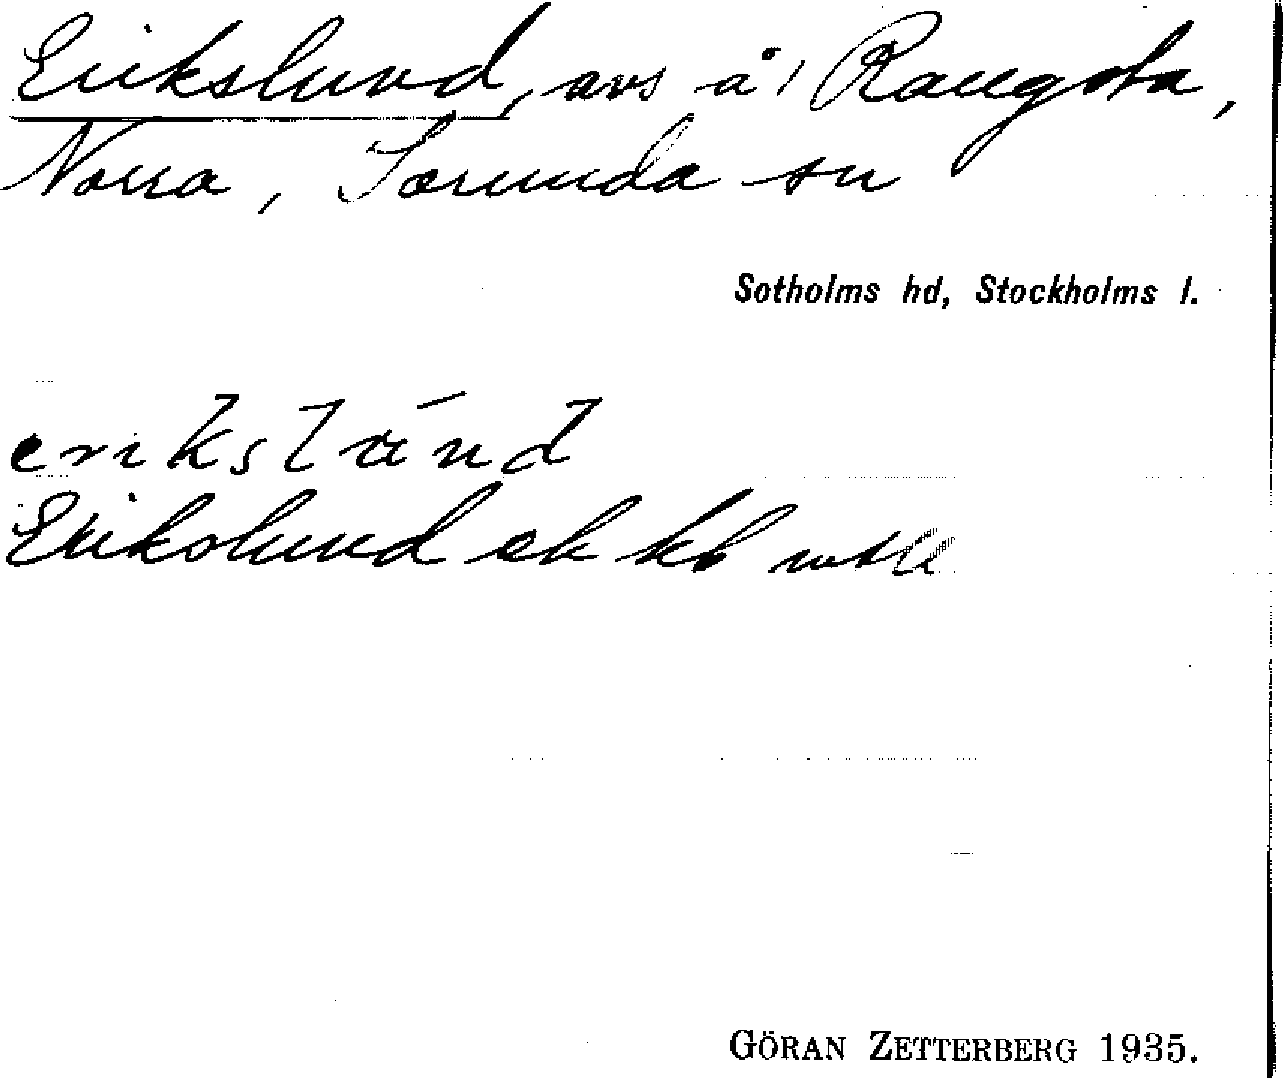 Erikslund, avs å Rangsta,
Norra, Sorunda sn
Sotholms hd, Stockholms l.
erikslund
Erikslund ek kb
GÖRAN ZETTERBERG 1935.